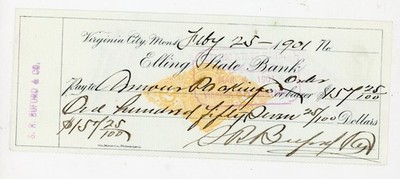 Virginia City, Mont. Feby 25 – 1901 No
Elling State Bank
Pay to Armour Packing Co or bearer $157 25/100
Order
One hundred fifty seven 25/100 Dollars
$157 25/100
S. R. Buford & Co.
S. R. BUFORD & CO.